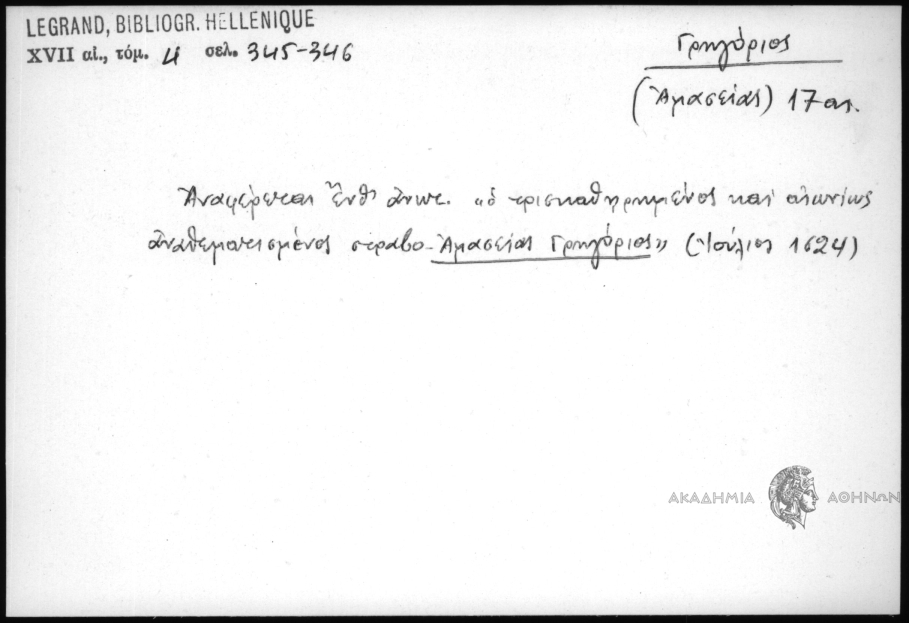 LEGRAND, BIBLIOGR. HELLENIQUE
XVII αἰ., τόμ. 4 σελ. 345-346
Γρηγόριος
(Ἀμασείας) 17 αι.
Ἀναφέρεται ἔνθ' ἀνωτ. «ὁ τρισκαθῃρημένος καὶ αἰωνίως
ἀναθεματισμένος στραβο-Ἀμασείας Γρηγόριος» (Ἰούλιος 1624)
ΑΚΑΔΗΜΙΑ ΑΘΗΝΩΝ